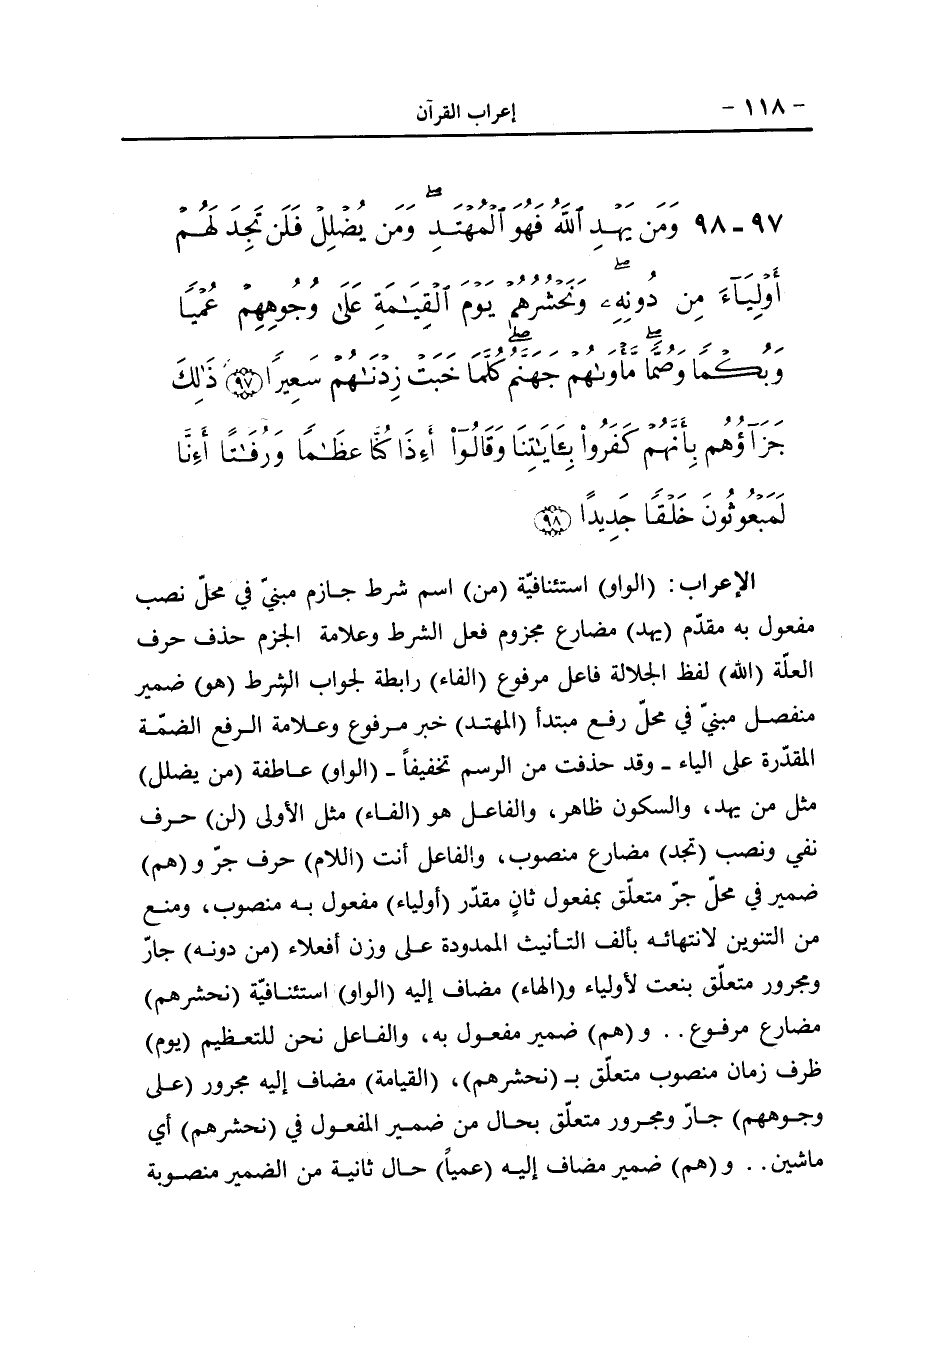 - ١١٨ - إعراب القرآن
٩٧ - ٩٨ وَمَن يَهْدِ ٱللَّهُ فَهُوَ ٱلْمُهْتَدِ ۖ وَمَن يُضْلِلْ فَلَن تَجِدَ لَهُمْ
أَوْلِيَآءَ مِن دُونِهِۦ ۖ وَنَحْشُرُهُمْ يَوْمَ ٱلْقِيَـٰمَةِ عَلَىٰ وُجُوهِهِمْ عُمْيًا
وَبُكْمًا وَصُمًّا ۖ مَّأْوَىٰهُمْ جَهَنَّمُ ۖ كُلَّمَا خَبَتْ زِدْنَـٰهُمْ سَعِيرًا ﴿٩٧﴾ ذَٰلِكَ
جَزَآؤُهُم بِأَنَّهُمْ كَفَرُوا۟ بِـَٔايَـٰتِنَا وَقَالُوٓا۟ أَءِذَا كُنَّا عِظَـٰمًا وَرُفَـٰتًا أَءِنَّا
لَمَبْعُوثُونَ خَلْقًا جَدِيدًا ﴿٩٨﴾
الإعراب : (الواو) استئنافيّة (من) اسم شرط جازم مبنيّ في محلّ نصب
مفعول به مقدّم (يهد) مضارع مجزوم فعل الشرط وعلامة الجزم حذف حرف
العلّة (الله) لفظ الجلالة فاعل مرفوع (الفاء) رابطة لجواب الشرط (هو) ضمير
منفصل مبنيّ في محلّ رفع مبتدأ (المهتد) خبر مرفوع وعلامة الرفع الضمّة
المقدّرة على الياء ـ وقد حذفت من الرسم تخفيفاً ـ (الواو) عاطفة (من يضلل)
مثل من يهد، والسكون ظاهر، والفاعل هو (الفاء) مثل الأولى (لن) حرف
نفي ونصب (تجد) مضارع منصوب، والفاعل أنت (اللام) حرف جرّ و (هم)
ضمير في محلّ جرّ متعلّق بمفعول ثانٍ مقدّر (أولياء) مفعول به منصوب، ومنع
من التنوين لانتهائه بألف التأنيث الممدودة على وزن أفعلاء (من دونه) جارّ
ومجرور متعلّق بنعت لأولياء و(الهاء) مضاف إليه (الواو) استئنافيّة (نحشرهم)
مضارع مرفوع . . و (هم) ضمير مفعول به، والفاعل نحن للتعظيم (يوم)
ظرف زمان منصوب متعلّق بـ (نحشرهم)، (القيامة) مضاف إليه مجرور (على
وجوههم) جارّ ومجرور متعلّق بحال من ضمير المفعول في (نحشرهم) أي
ماشين . . و (هم) ضمير مضاف إليه (عمياً) حال ثانية من الضمير منصوبة